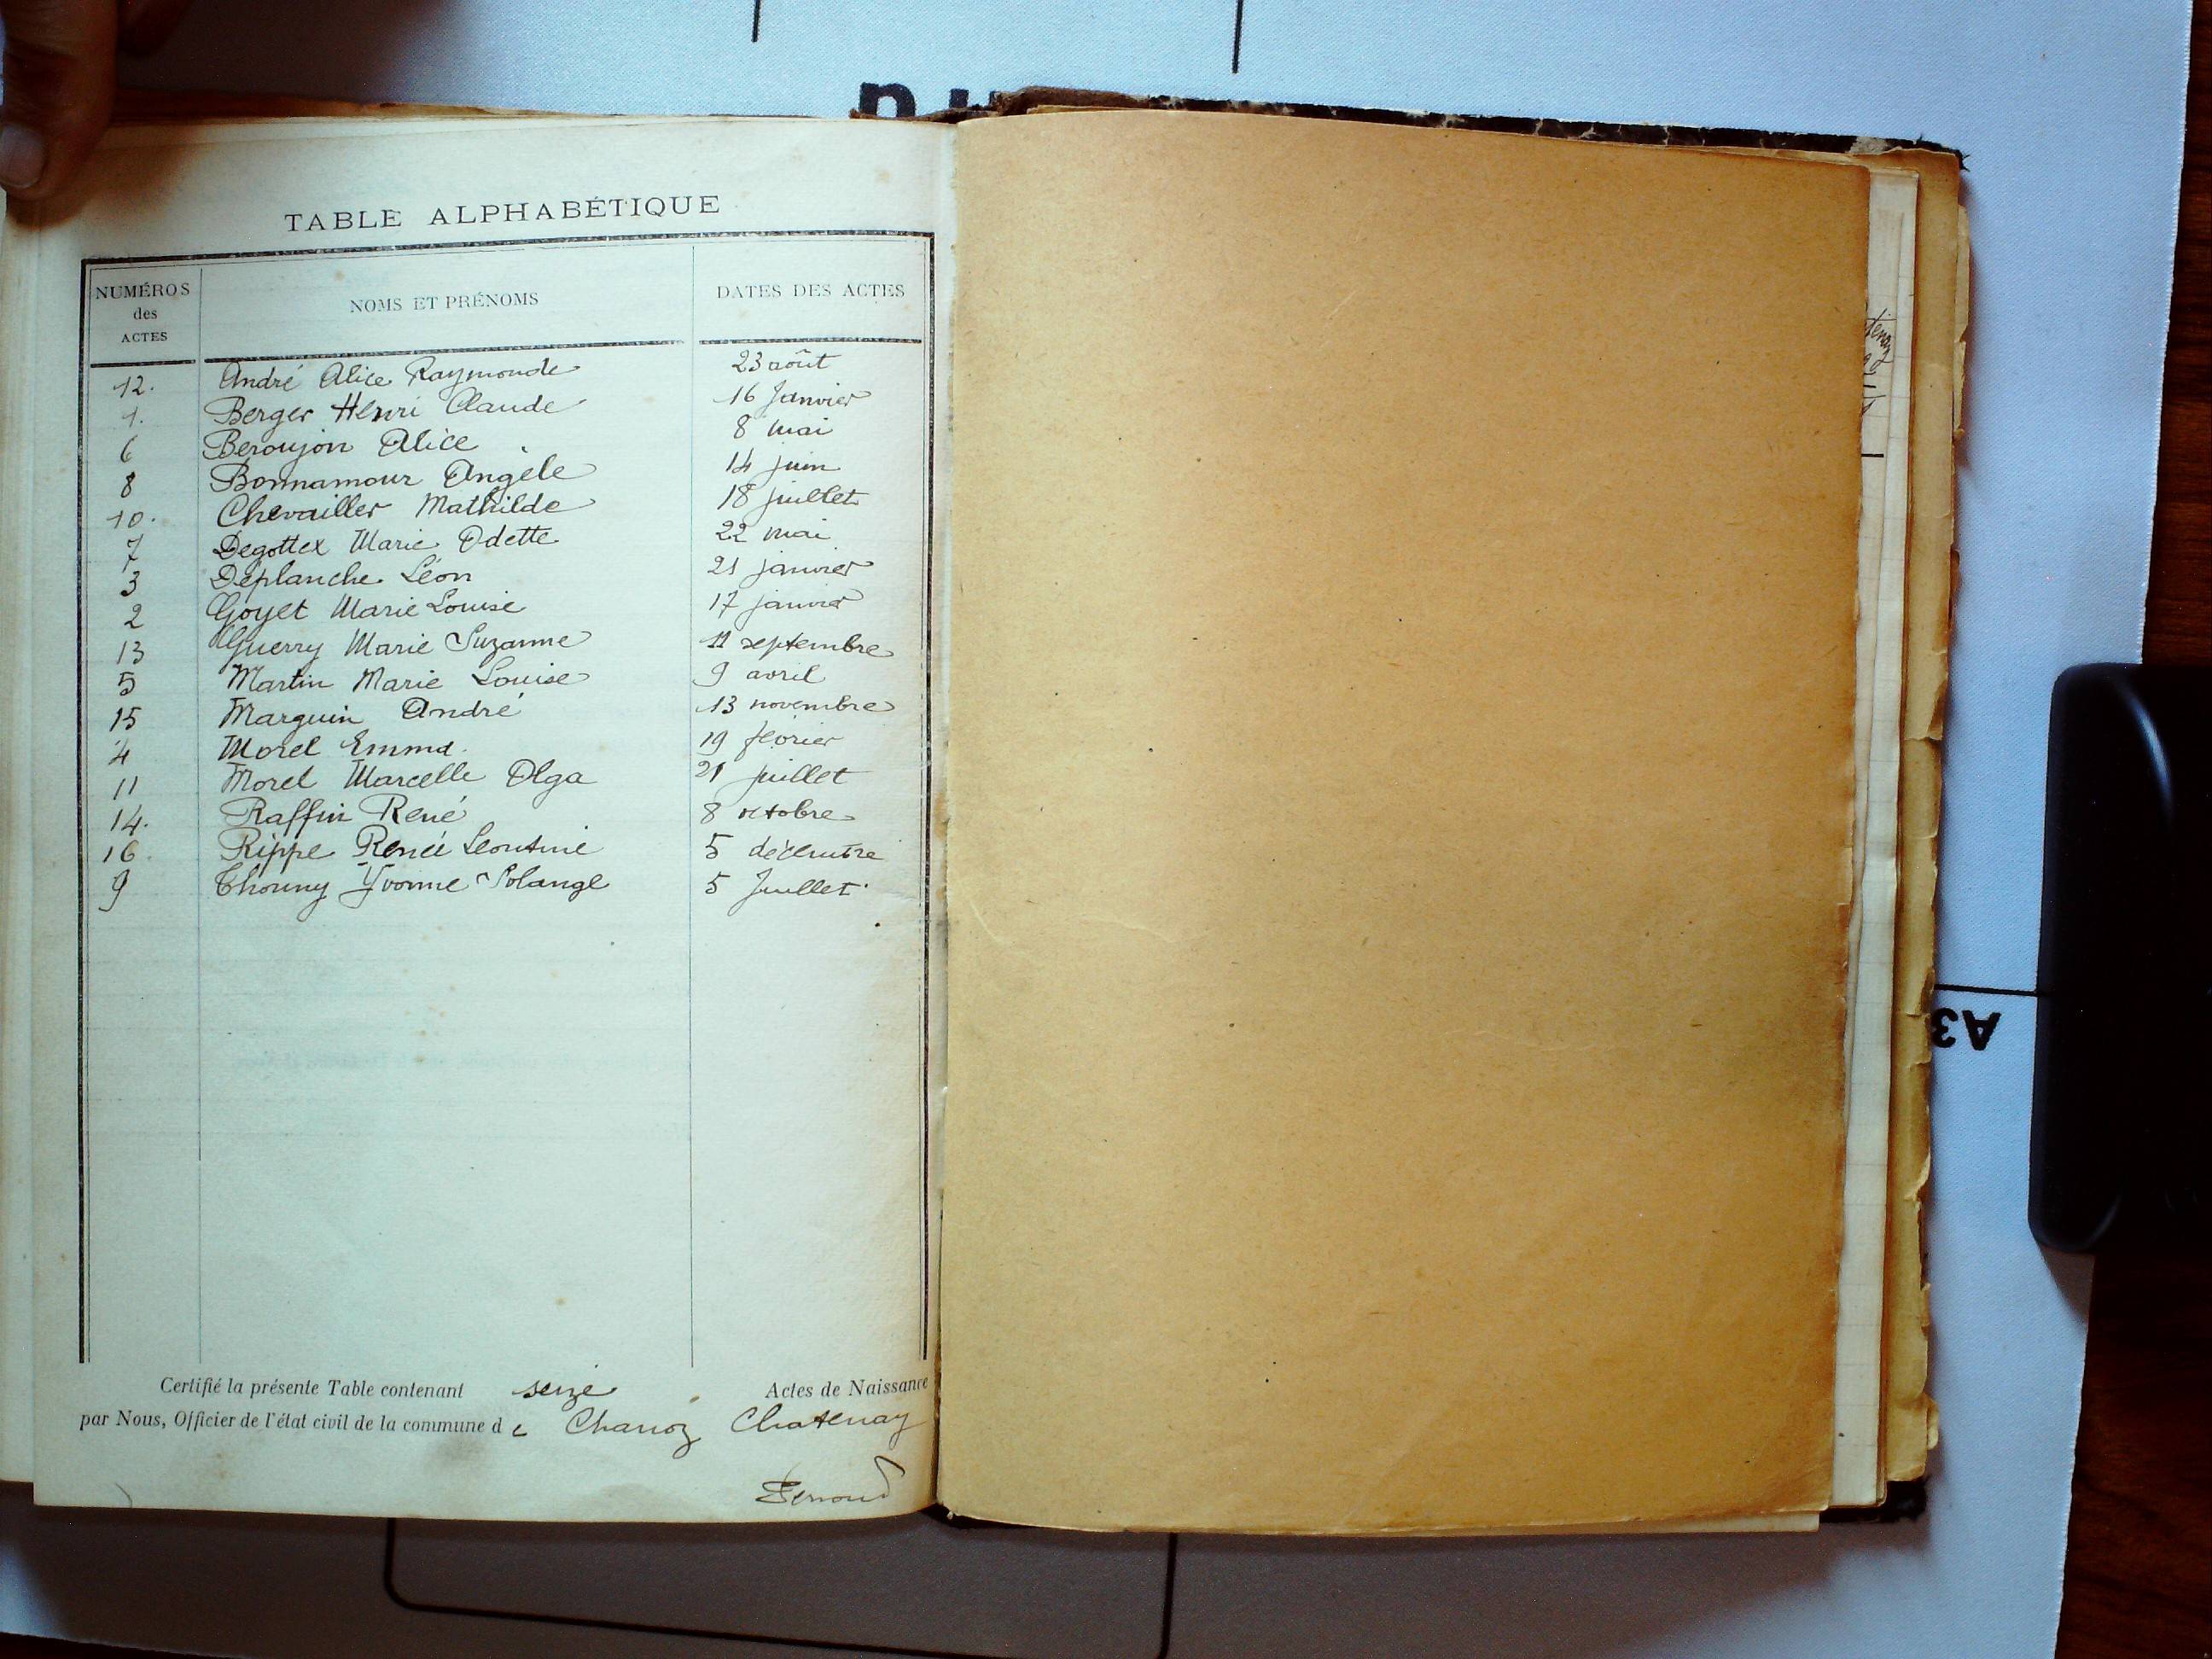 TABLE ALPHABÉTIQUE
NUMÉROS des ACTES NOMS ET PRÉNOMS DATES DES ACTES
12. André Alice Raymonde 23 août
1. Berger Henri Claude 16 Janvier
6 Beroujon Alice 8 mai
8 Bonnamour Angèle 14 juin
10. Chevailler Mathilde 18 juillet
7 Degottex Marie Odette 22 mai
3 Deplanche Léon 21 janvier
2 Goyet Marie Louise 17 janvier
13 Guerry Marie Suzanne 11 septembre
5 Martin Marie Louise 9 avril
15 Marguin André 13 novembre
4 Morel Emma. 19 février
11 Morel Marcelle Olga 21 juillet
14. Raffin René 8 octobre
16. Rippe Renée Léontine 5 décembre
9 Thouny Yvonne Solange 5 Juillet
Certifié la présente Table contenant seize Actes de Naissance
par Nous, Officier de l'état civil de la commune de Chanoz Chatenay
A3